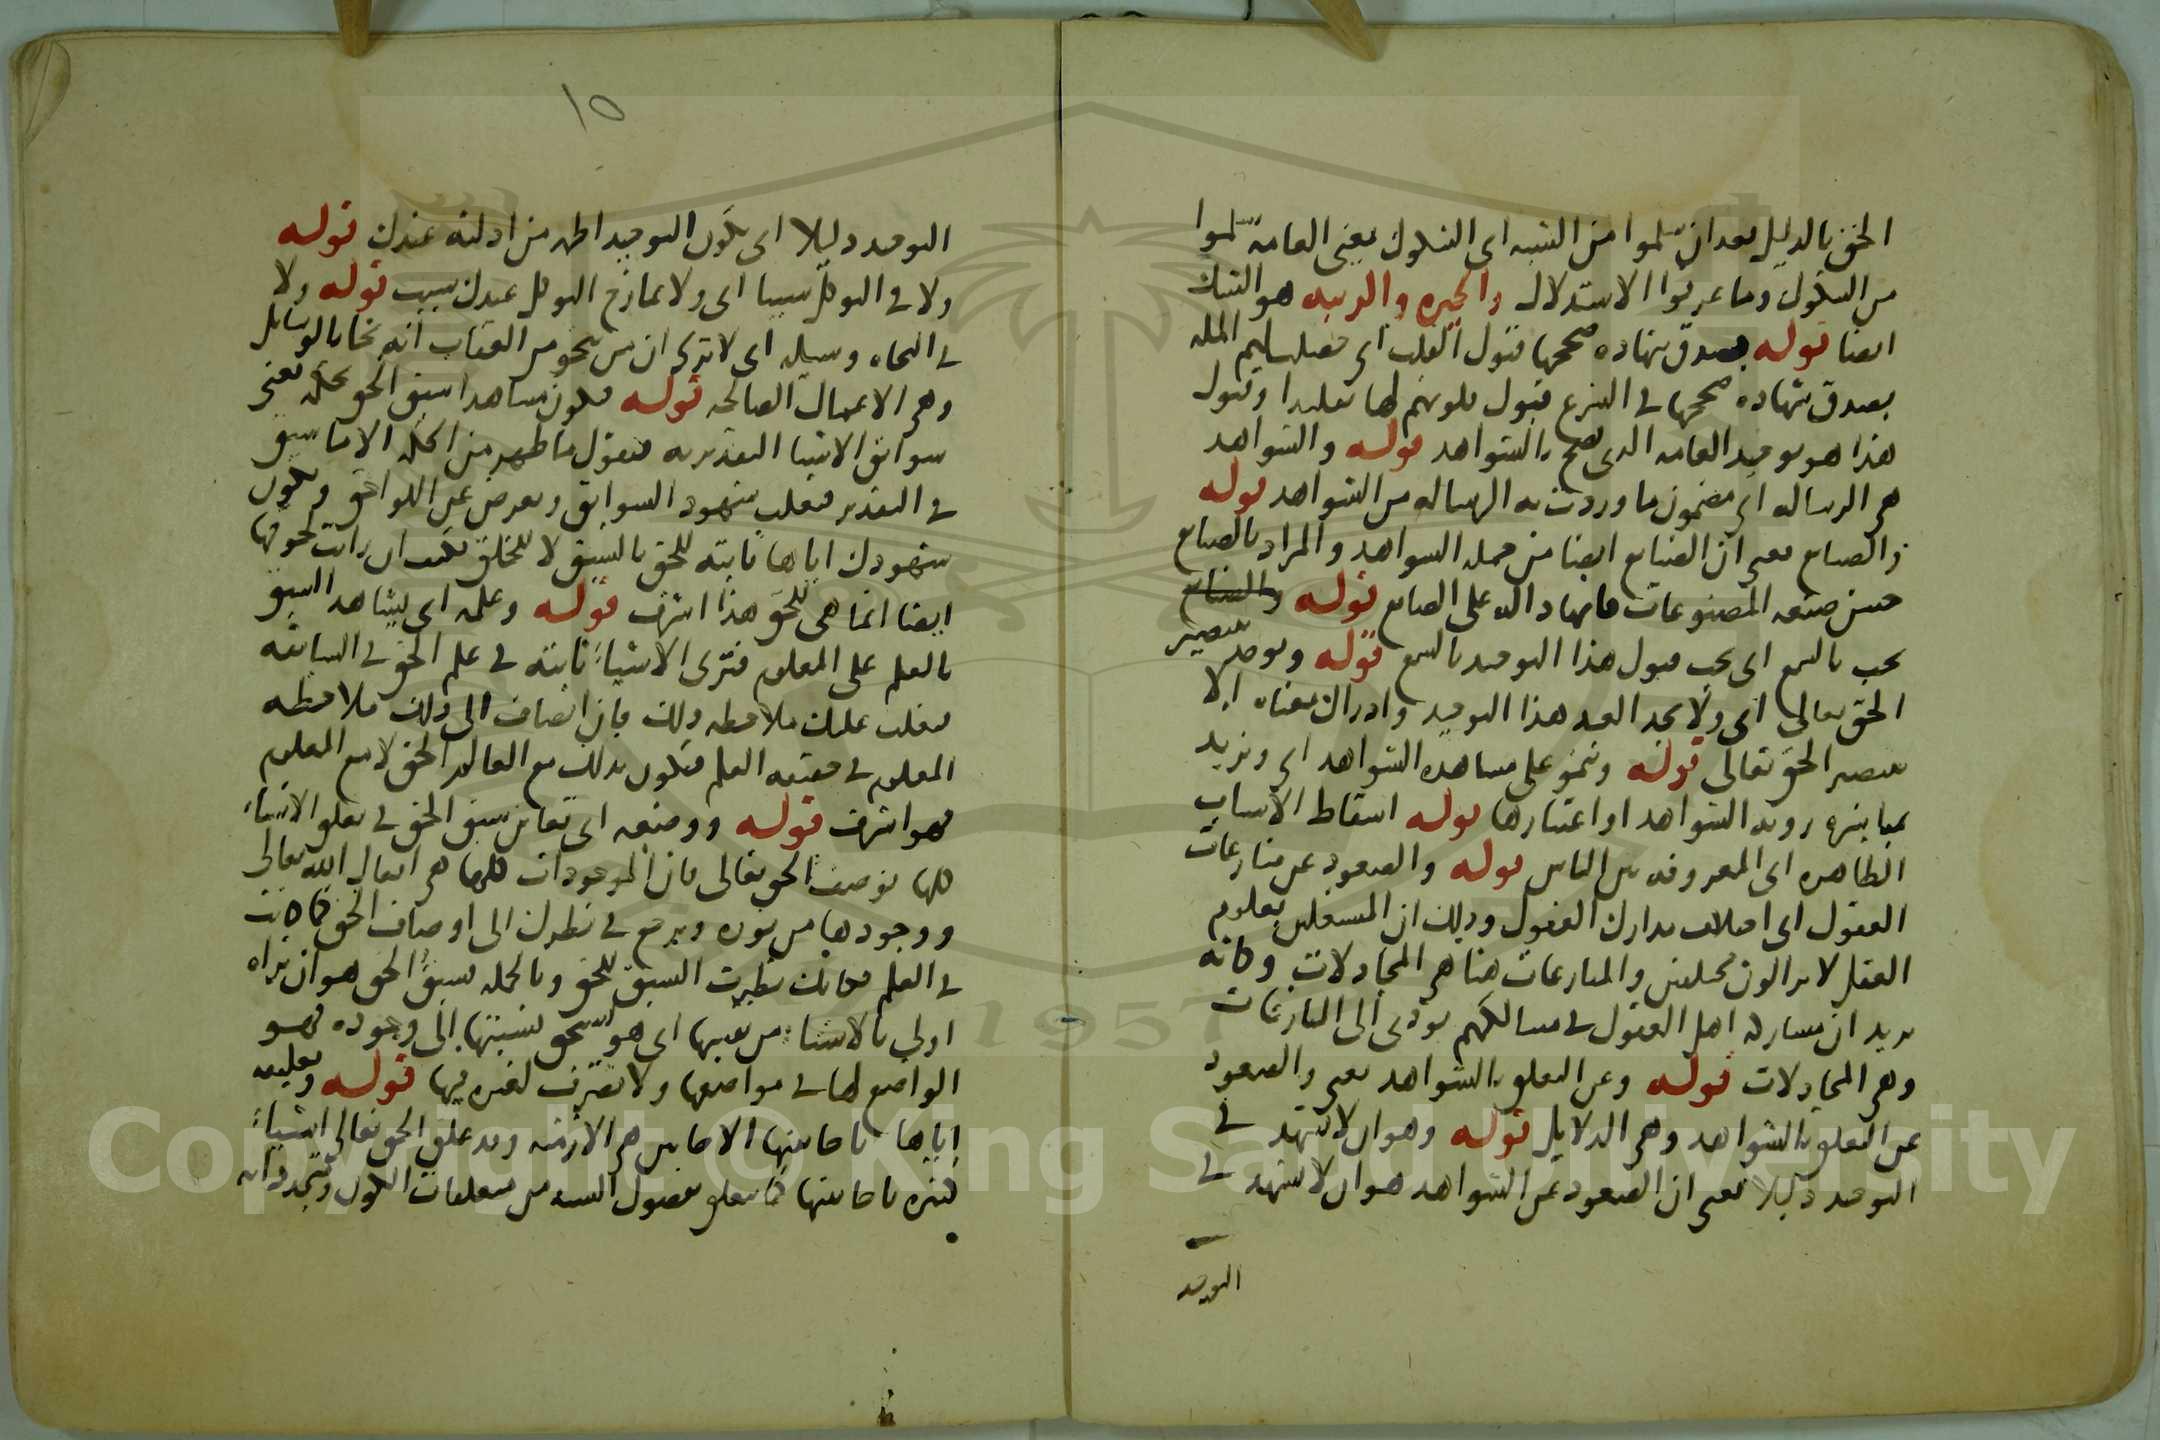 الحق بالدليل بعد ان سلموا من الشبه اى الشكوك يعنى العامه سلموا
من الشكوك وما عرفوا الاستدلال والحيره والريبه هو الشك
ايضا قوله بصدق شهاده صححها قبول القلب اى حصلت لهم المله
بصدق شهاده صححها فى الشرع قبول قلوبهم لها تقليدا وقبول
هذا هو توحيد العامه الذى يصح بالشواهد قوله والشواهد
هى الرساله اى مضمون ما وردت به الرساله من الشواهد قوله
والصنايع يعنى ان الصنايع ايضا من جمله الشواهد والمراد بالصنايع
حسن صنعه المصنوعات فانها داله على الصانع قوله
يجب بالسمع اى يجب قبول هذا التوحيد بالسمع قوله ويوجد بتبصير
الحق تعالى اى ولا يجد العبد هذا التوحيد وادراك معناه الا
بتبصير الحق تعالى قوله وينمو على مشاهده الشواهد اى ويزيد
بمباشره رويه الشواهد او اعتبارها قوله اسقاط الاسباب
الظاهره اى المعروفه بين الناس قوله والصعود عن منازعات
العقول اى اختلاف مدارك العقول وذلك ان المشتغلين بعلوم
العقل لا يزالون مختلفين والمنازعات هنا هى المجادلات وكانه
يريد ان مشاركه اهل العقول فى مسالكهم يودى الى المنازعات
وهى المجادلات قوله وعن التعلق بالشواهد يعنى والصعود
عن التعلق بالشواهد وهى الدلايل قوله وهو ان لا تشهد فى
التوحيد دليلا يعنى ان الصعود عن الشواهد هو ان لا تشهد فى
التوحيد
١٥
التوحيد دليلا اى يكون التوحيد اظهر من ادلته عندك قوله
ولا فى التوكل سببا اى ولا يمازج التوكل عندك سبب قوله ولا
فى النجاه وسيله اى لا ترى ان من ينجو من العقاب انه نجا بالوسايل
وهى الاعمال الصالحه قوله فتكون مشاهدا سبق الحق بحكمه يعنى
سوابق الاشيا التقديريه فتقول ما ظهر من الحكم الا ما سبق
فى التقدير فتغلب شهود السوابق وتعرض عن اللواحق ويكون
شهودك اياها ثابته للحق بالسبق لا للخلق فكيف ان رايت لحوقها
ايضا انما هى للحق هذا اشرف قوله وعلمه اى يشاهد السبق
بالعلم على المعلوم فترى الاشياء ثابته فى علم الحق فى السابقه
فغلب عليك ملاحظه ذلك فان انضاف الى ذلك ملاحظه
المعلوم فى حقيقه العلم فتكون بذلك مع العالم الحق لا مع المعلوم
فهو اشرف قوله ووضعه اى تعاين سبق الحق فى تعلق الاشياء
كلها بوصف الحق تعالى فان الموجودات كلها هى افعال الله تعالى
ووجودها من نوره ويرجع فى نظرك الى اوصاف الحق كما كانت
فى العلم فكانك نظرت السبق للحق وبالجمله سبق الحق هو ان تراه
اولى بالاشياء من نفسها اى هو يستحق نسبتها الى وجوده فهو
الواضع لها فى مواضعها ولا تصرف لغيره فيها قوله وتعليقه
اياها باحايينها الاحايين هى الازمنه وقد علق الحق تعالى اشياء
كثيره باحايينها كما يعلق بفصول السنه من متعلقات الكون وتجدداته